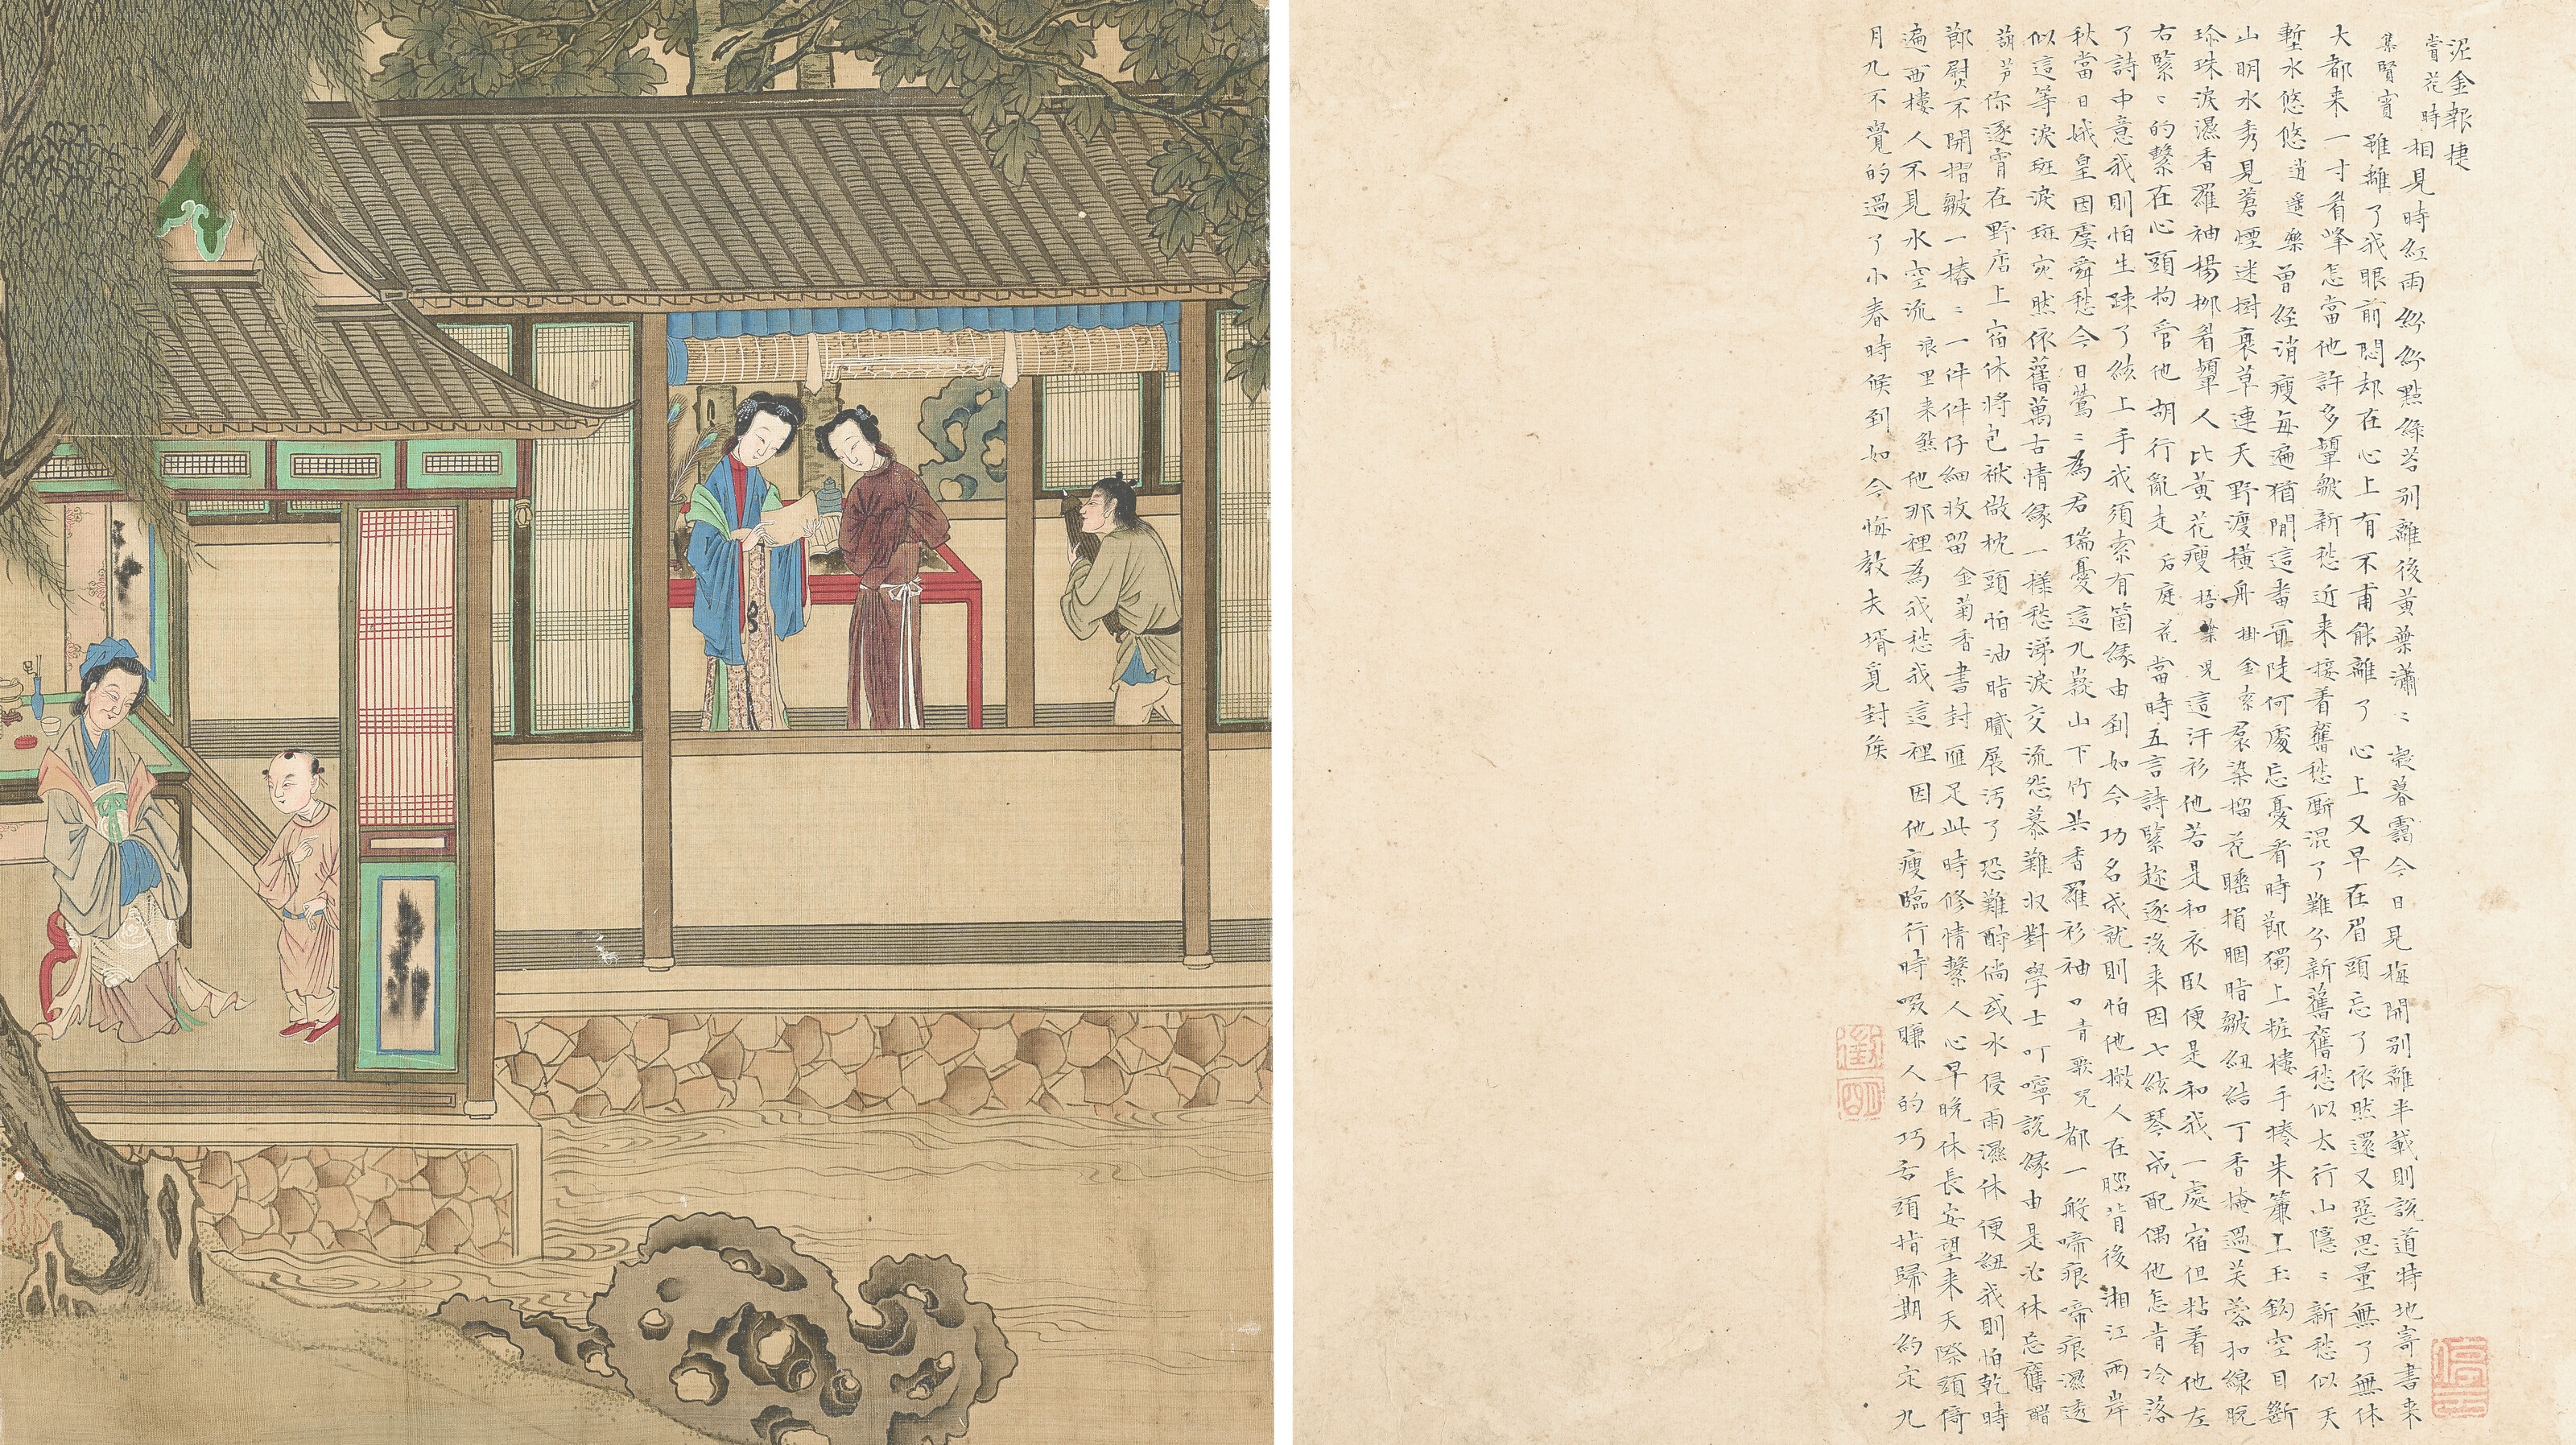 泥金報捷
賞花時 相見時紅雨紛紛點綠苔別離後黃葉瀟〻凝暮靄今日見梅開別離半載則說道特地寄書来
集賢賓 雖離了我眼前悶却在心上有不甫能離了心上又早在眉頭忘了依然還又惡思量無了無休
大都来一寸眉峰怎當他許多顰皺新愁近来接着舊愁廝混了難分新舊舊愁似太行山隱〻新愁似天
塹水悠悠 逍遥樂 曾經消瘦每遍猶閒這番最陡何處忘憂看時節獨上粧樓手捲朱簾上玉鈎空目斷
山明水秀見蒼煙迷樹衰草連天野渡橫舟 掛金索 裙染榴花睡損胭脂皺紐結丁香掩過芙蓉扣線脫
珎珠淚濕香羅袖楊柳眉顰人比黃花瘦 梧葉兒 這汗衫他若是和衣臥便是和我一處宿但粘着他左
右緊〻的繫在心頭拘管他胡行亂走 后庭花 當時五言詩緊趂逐後来因七絃琴成配偶他怎肯冷落
了詩中意我則怕生踈了絃上手我須索有箇緣由到如今功名成就則怕他撇人在腦背後湘江兩岸
秋當日娥皇因虞舜愁今日鶯〻為君瑞憂這九嶷山下竹共香羅衫袖口 青歌兒 都一般啼痕啼痕濕透
似這等淚斑淚斑宛然依舊萬古情緣一樣愁涕淚交流怨慕難收對學士叮嚀說緣由是必休忘舊 醋
葫芦 你逐宵在野店上宿休將包袱做枕頭怕油脂膩展汚了恐難酧倘或水侵雨濕休便紐我則怕乾時
節熨不開摺皺一樁〻一件件仔細收留 金菊香 書封雁足此時修情繫人心早晚休長安望来天際頭倚
遍西樓人不見水空流 浪里来煞 他那裡為我愁我這裡因他瘦臨行時啜賺人的巧舌頭指歸期約定九
月九不覺的過了小春時候到如今悔教夫壻覓封侯
徵明
停雲